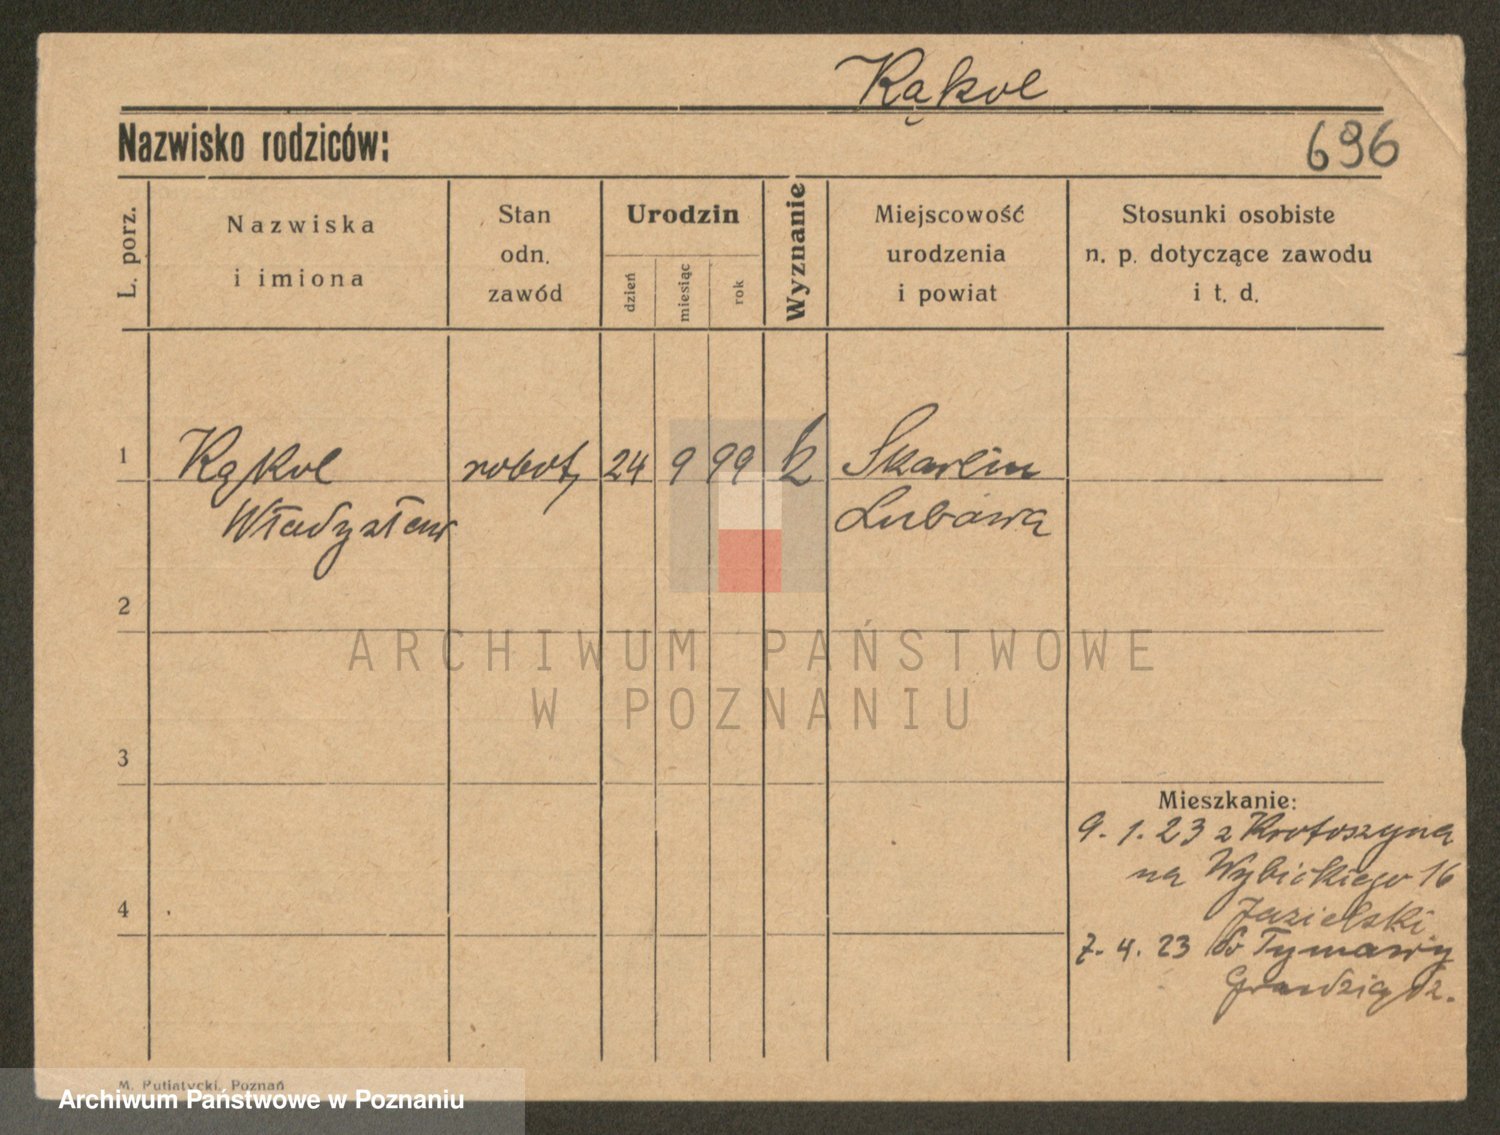 Kąkol
Nazwisko rodziców:
696
L. porz.
Nazwiska
i imiona
Stan
odn.
zawód
Urodzin
dzień
miesiąc
rok
Wyznanie
Miejscowość
urodzenia
i powiat
Stosunki osobiste
n. p. dotyczące zawodu
i t. d.
1 Kąkol robot, 24 9 99 k Skarlin
Władysław Lubawa
2
ARCHIWUM PAŃSTWOWE
W POZNANIU
3
Mieszkanie:
9. 1. 23 z Krotoszyna
na Wybickiego 16
4
7. 4. 23 do Tymawy
M. Putiatycki, Poznań
Archiwum Państwowe w Poznaniu